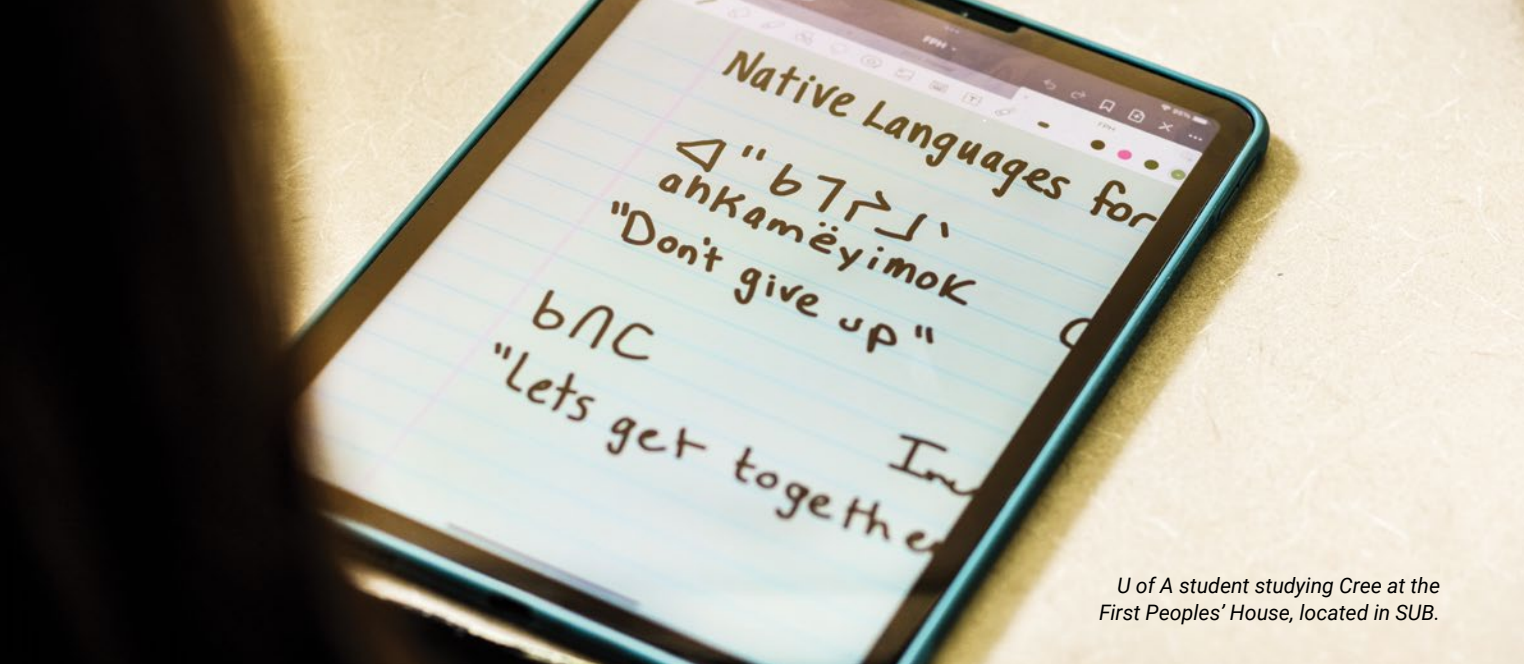 FPH
Native Languages for
ᐊᐦᑲᒣᔨᒧᐠ
ahkamëyimok
"Don't give up"
ᑲᑎᑕ
"Lets get together
U of A student studying Cree at the
First Peoples' House, located in SUB.